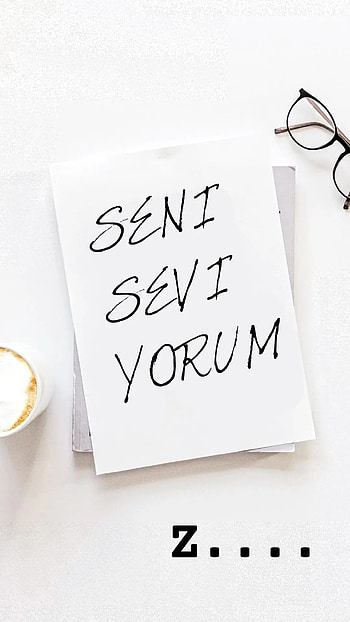 SENI
SEVI
YORUM
Z....